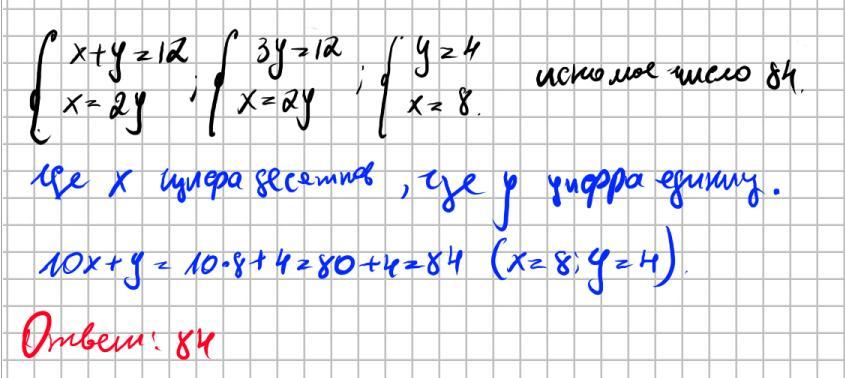 { x+y=12 ; { 3y=12 ; { y=4
x=2y x=2y x=8. искомое число 84.
где x цифра десятков, где y цифра единиц.
10x+y=10·8+4=80+4=84 (x=8; y=4).
Ответ: 84